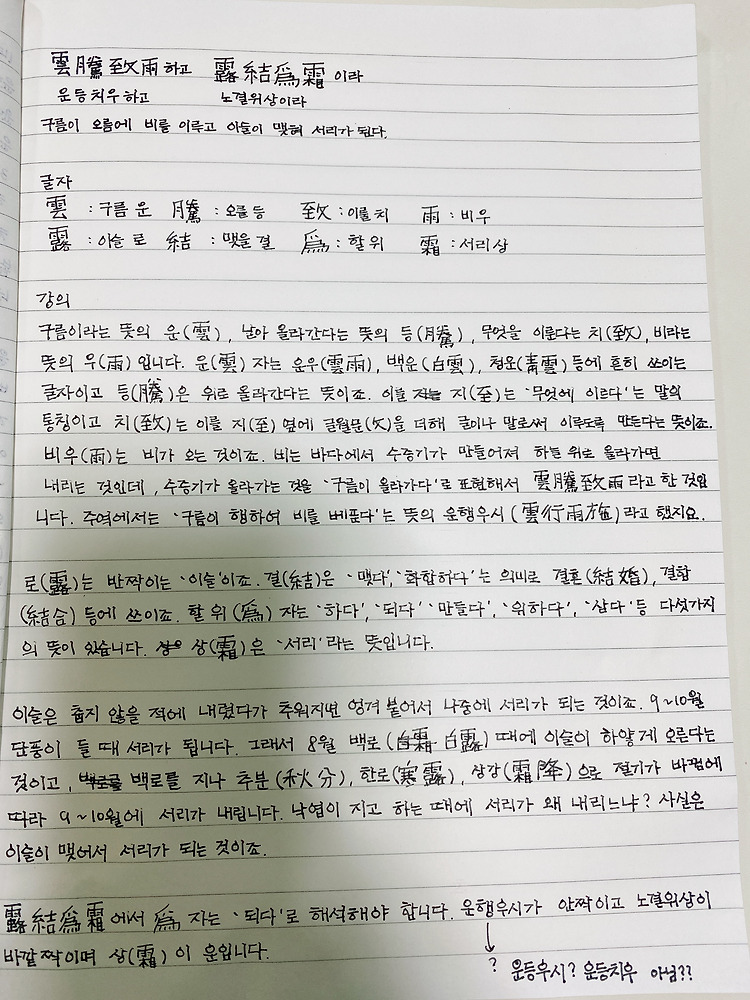 雲騰致雨하고 露結爲霜이라
운등치우하고 노결위상이라
구름이 오름에 비를 이루고 이슬이 맺혀 서리가 된다.
글자
雲 : 구름 운 騰 : 오를 등 致 : 이를 치 雨 : 비 우
露 : 이슬 로 結 : 맺을 결 爲 : 할 위 霜 : 서리 상
강의
구름이라는 뜻의 운(雲), 날아 올라간다는 뜻의 등(騰), 무엇을 이룬다는 치(致), 비라는
뜻의 우(雨)입니다. 운(雲) 자는 운우(雲雨), 백운(白雲), 청운(靑雲) 등에 흔히 쓰이는
글자이고 등(騰)은 위로 올라간다는 뜻이죠. 이를 지(至)는 '무엇에 이르다'는 말의
통칭이고 치(致)는 이를 지(至) 옆에 글월문(攵)을 더해 글이나 말로써 이루도록 만든다는 뜻이죠.
비우(雨)는 비가 오는 것이죠. 비는 바다에서 수증기가 만들어져 하늘 위로 올라가면
내리는 것인데, 수증기가 올라가는 것을 '구름이 올라가다'로 표현해서 雲騰致雨라고 한 것입
니다. 주역에서는 '구름이 행하여 비를 베푼다'는 뜻의 운행우시(雲行雨施)라고 했지요.
로(露)는 반짝이는 '이슬'이죠. 결(結)은 '맺다', '화합하다'는 의미로 결혼(結婚), 결합
(結合) 등에 쓰이죠. 할 위(爲) 자는 '하다', '되다' '만들다', '위하다', '삼다' 등 다섯가지
의 뜻이 있습니다. 상(霜)은 '서리'라는 뜻입니다.
이슬은 춥지 않을 적에 내렸다가 추워지면 엉겨 붙어서 나중에 서리가 되는 것이죠. 9~10월
단풍이 들 때 서리가 됩니다. 그래서 8월 백로(白霜 白露) 때에 이슬이 하얗게 오른다는
것이고, 백로를 지나 추분(秋分), 한로(寒露), 상강(霜降)으로 절기가 바뀜에
따라 9~10월에 서리가 내립니다. 낙엽이 지고 하는 때에 서리가 왜 내리느냐? 사실은
이슬이 맺어서 서리가 되는 것이죠.
露結爲霜에서 爲 자는 '되다'로 해석해야 합니다. 운행우시가 안짝이고 노결위상이
바깥짝이며 상(霜)이 운입니다.
↓
? 운등우시? 운등치우 아님??